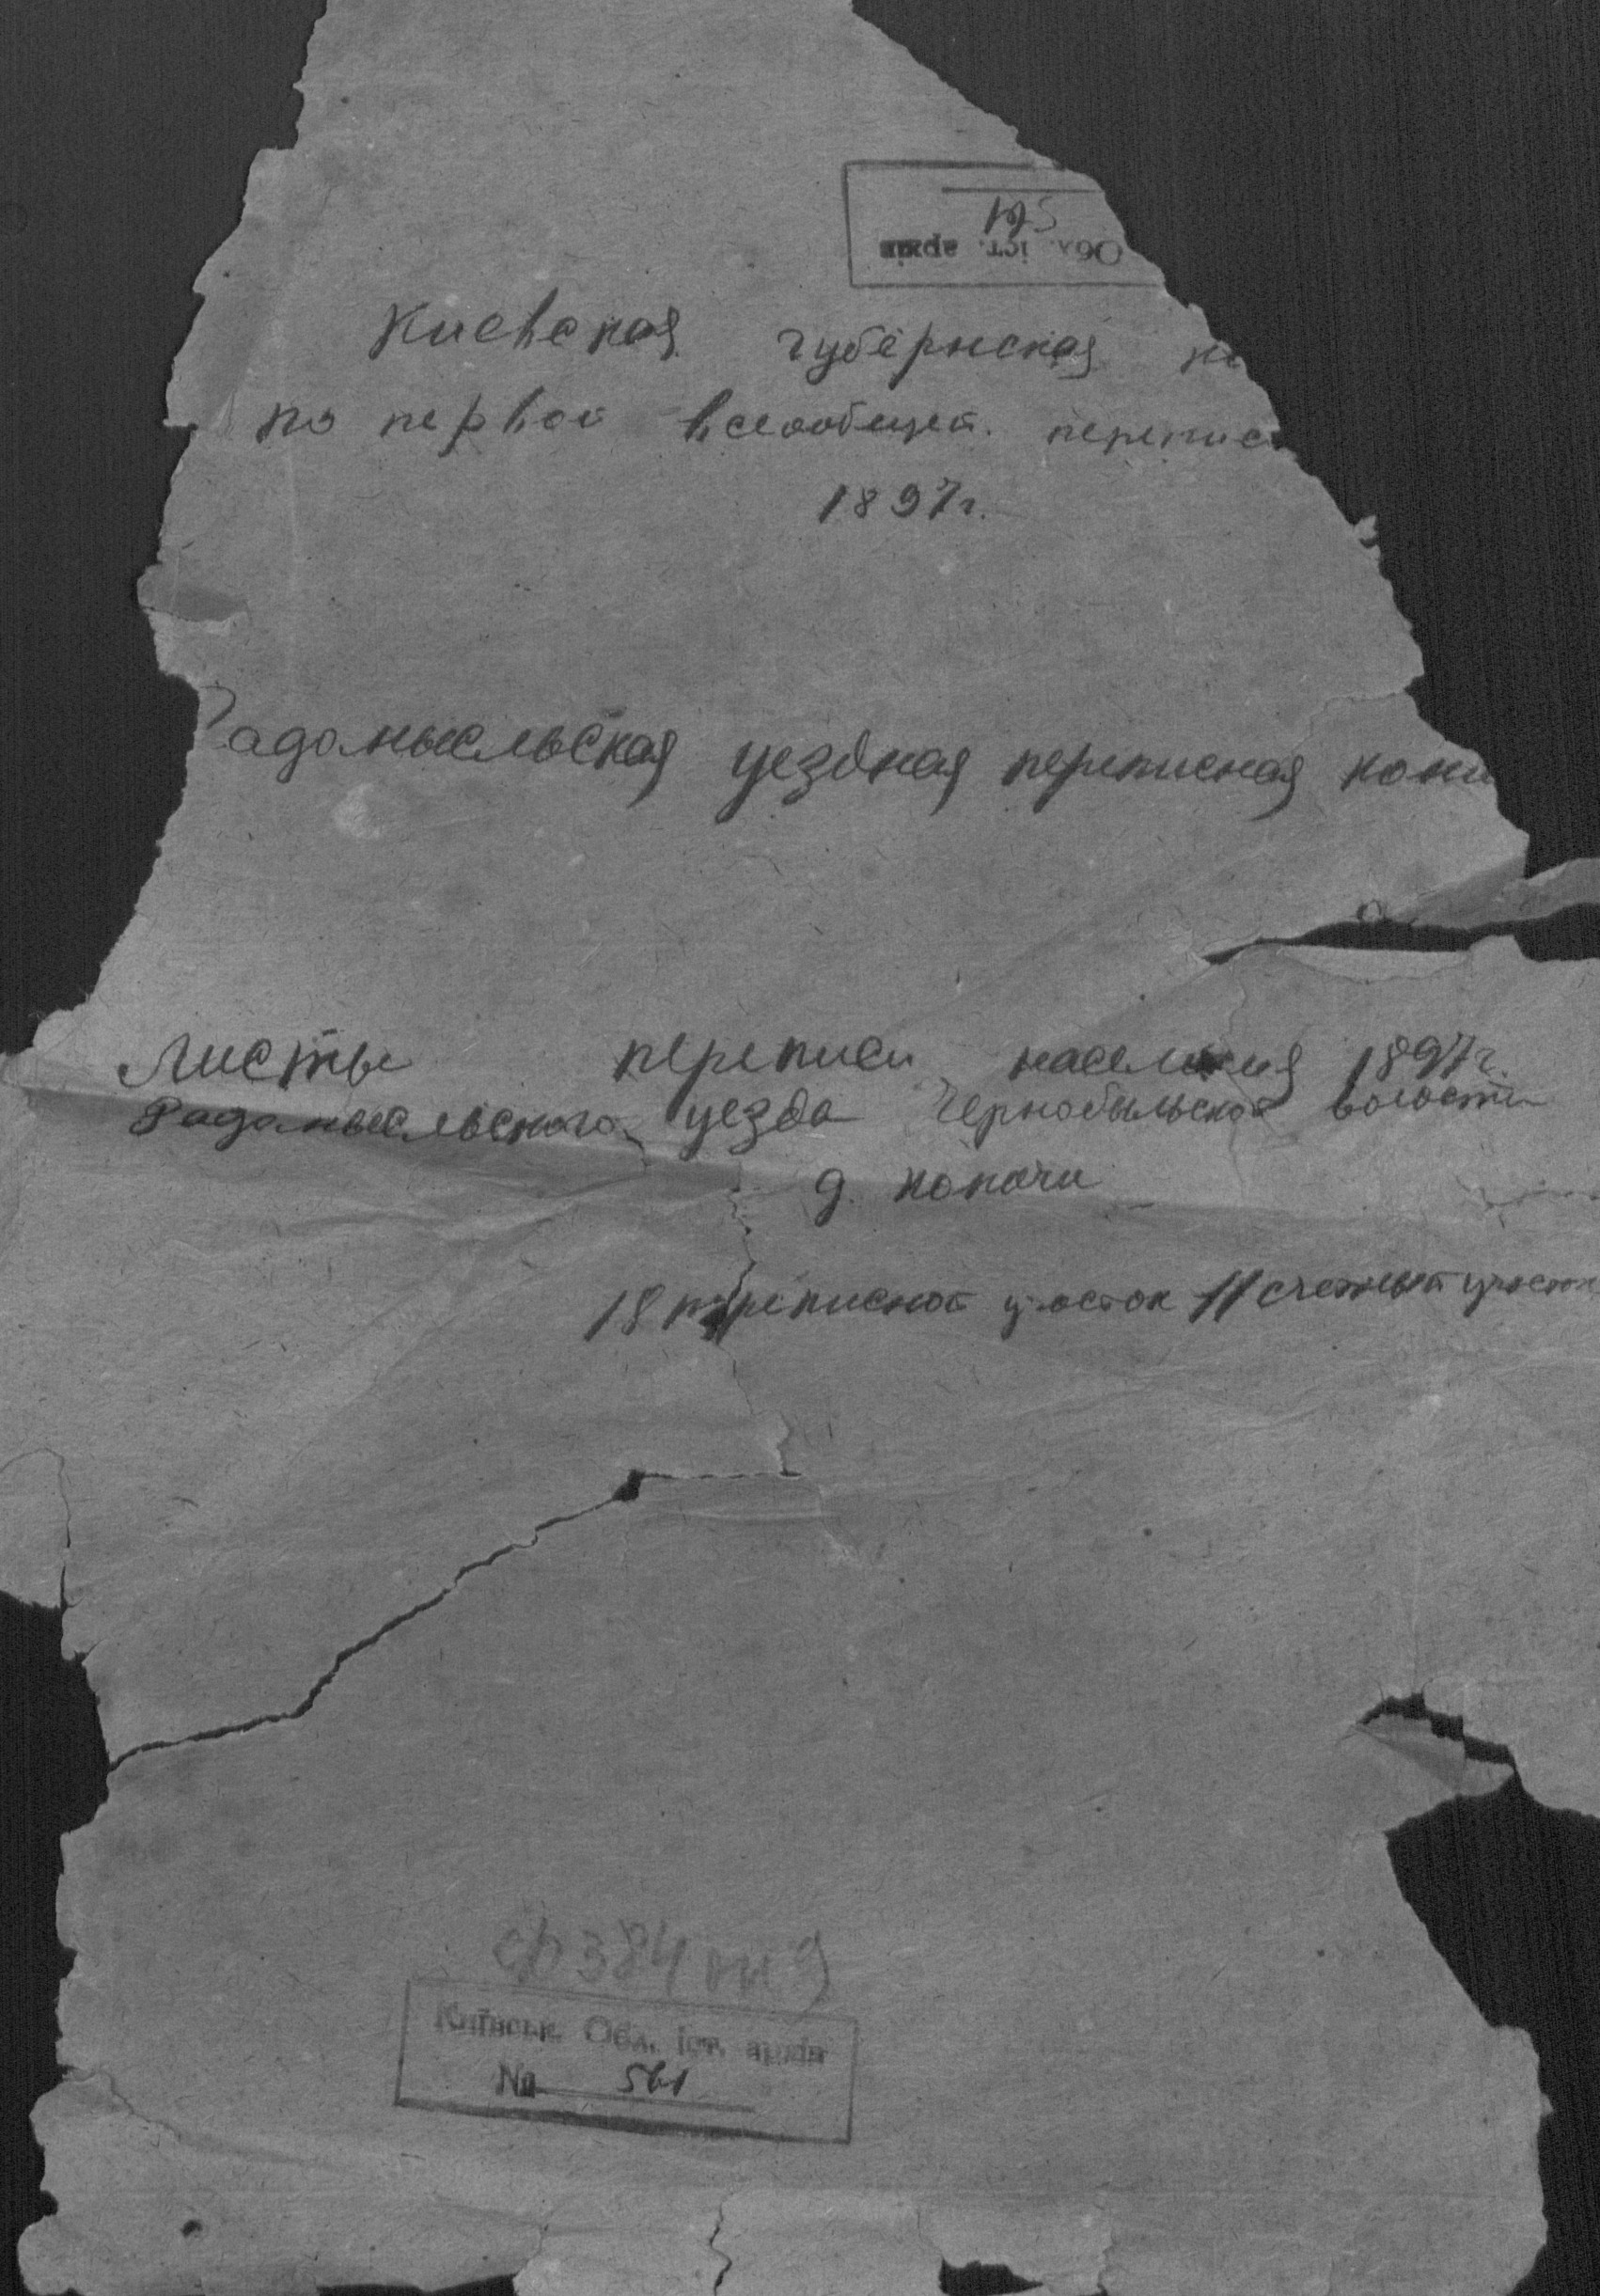 561
Обл. іст. архів
Киевская губернская ко
по первой всеобщей. перепис
1897г.
Радомысльская уездная переписная коми
Листы переписи населения 1897г.
Радомысльского уезда Чернобыльской волости
д. Копачи
18 переписной участок 11 счетный участок
ф 384 оп 9
Київськ. Обл. іст. архів
№ 561